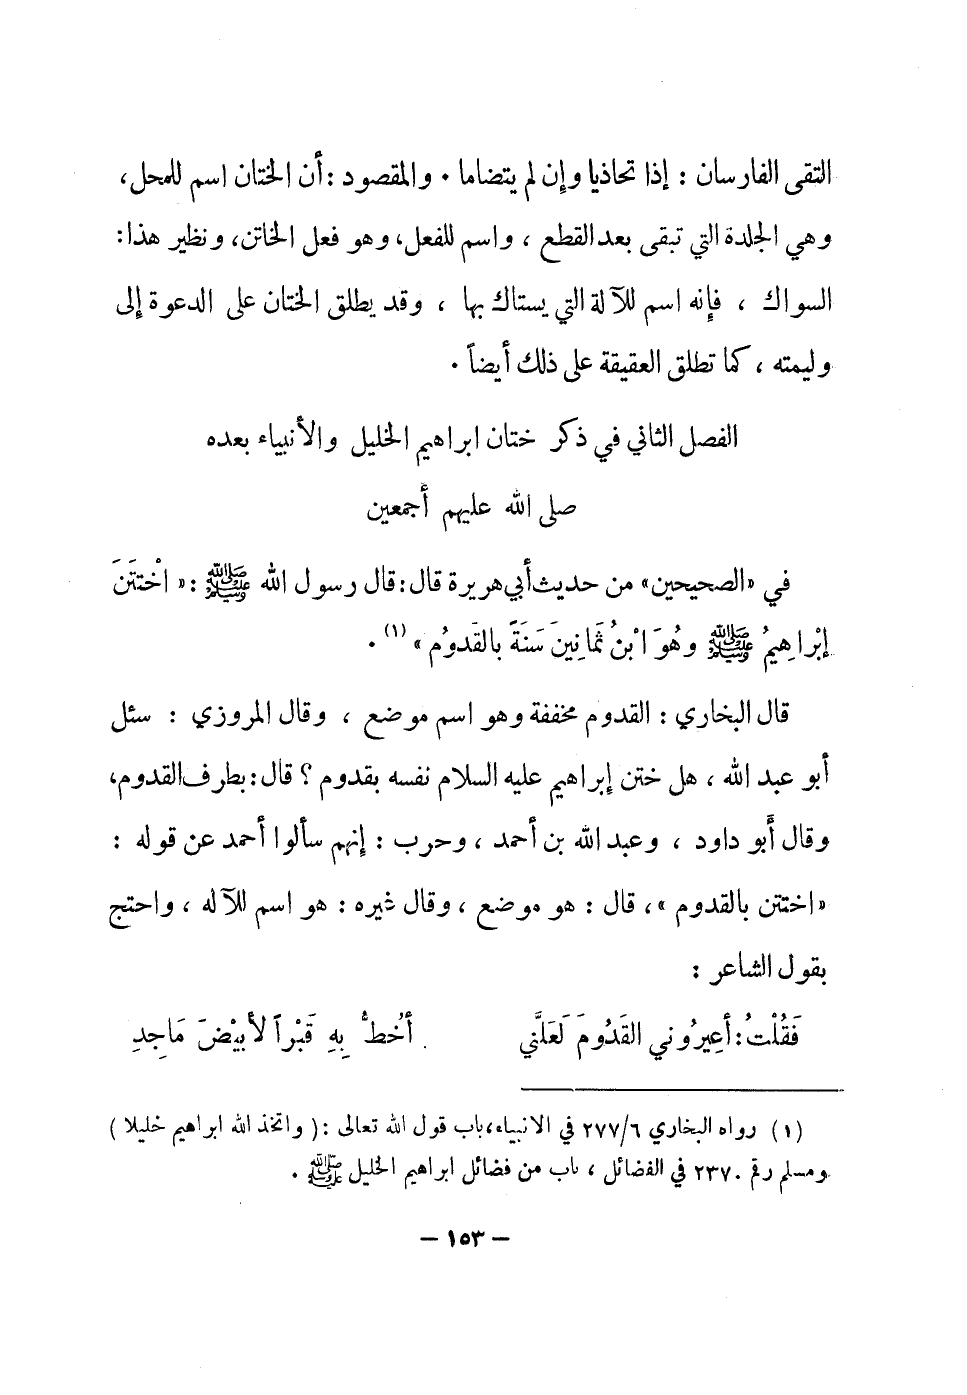 التقى الفارسان : إذا تحاذيا وإن لم يتضاما . والمقصود : أن الختان اسم للمحل،
وهي الجلدة التي تبقى بعد القطع ، واسم للفعل، وهو فعل الخاتن، ونظير هذا:
السواك ، فإنه اسم للآلة التي يستاك بها ، وقد يطلق الختان على الدعوة إلى
وليمته ، كما تطلق العقيقة على ذلك أيضاً .
الفصل الثاني في ذكر ختان ابراهيم الخليل والأنبياء بعده
صلى الله عليهم أجمعين
في «الصحيحين» من حديث أبي هريرة قال: قال رسول الله ﷺ : « اخْتَتَنَ
إبْراهِيمُ ﷺ وهُوَ ابْنُ ثَمانِينَ سَنَةً بالقَدوُم » (١) .
قال البخاري : القدوم مخففة وهو اسم موضع ، وقال المروزي : سئل
أبو عبد الله ، هل ختن إبراهيم عليه السلام نفسه بقدوم ؟ قال: بطرف القدوم،
وقال أبو داود ، وعبد الله بن أحمد ، وحرب : إنهم سألوا أحمد عن قوله :
« اختتن بالقدوم »، قال : هو موضع ، وقال غيره : هو اسم للآله ، واحتج
بقول الشاعر :
فَقُلْتُ : أعِيرُوني القَدُومَ لَعَلَّني أخُطُّ بِهِ قَبْراً لأبيْضَ مَاجِدِ
(١) رواه البخاري ٢٧٧/٦ في الانبياء، باب قول الله تعالى : ( واتخذ الله ابراهيم خليلا )
ومسلم رقم ٢٣٧٠ في الفضائل ، باب من فضائل ابراهيم الخليل ﷺ .
— ١٥٣ —